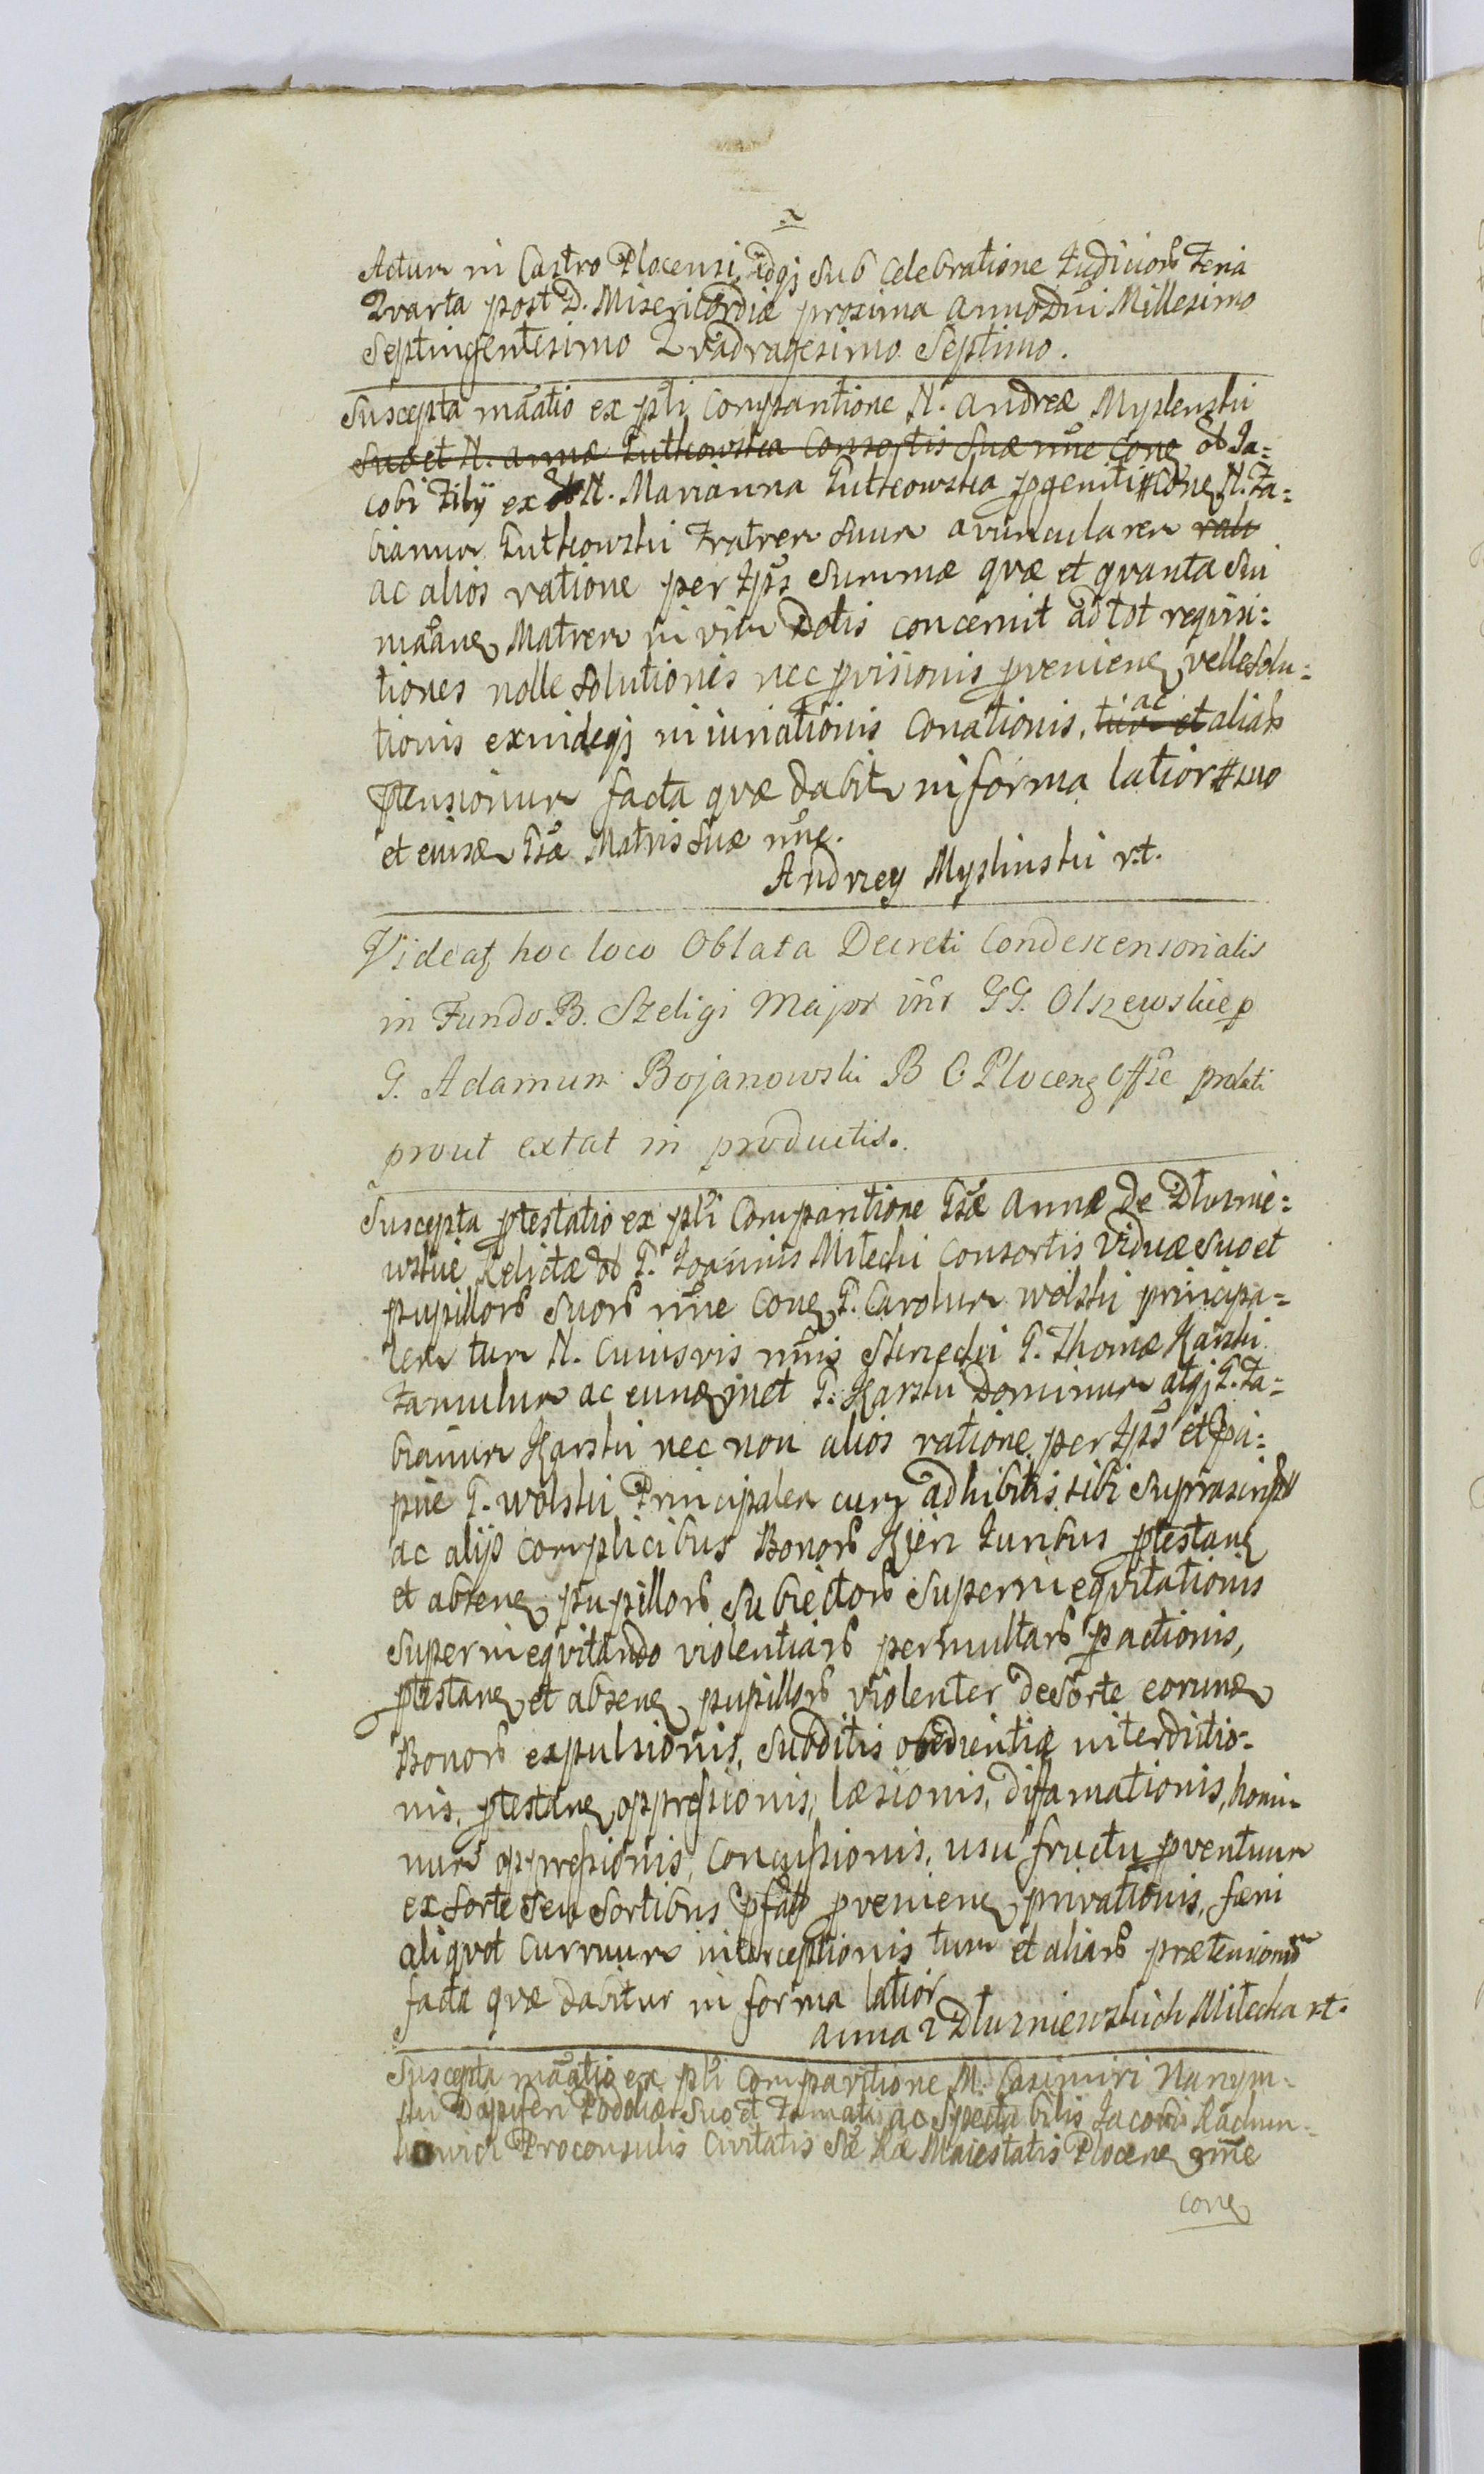 Actum in Castro Plocensi, idq3 sub Celebratione Judiciorũ Feria
Qvarta post D. Misericordiæ proxima Anno Dni Millesimo
Septingentesimo Qvadragesimo Septimo.
Suscepta mãatio ex ptli Comparitione N. Andreæ Myslenski
Suo et N. Annæ Gutkowska Consortis Suæ nñe Cone ol Ja=
cobi Filÿ ex ol N. Marianna Gutkowska pgeniti # Cone N. Fa=
bianum Gutkowski Fratrem Suum avuncularem rati
ac alios ratione per Ipõs Summæ qvæ et qvanta Sui
mãane Matrem in vim Dotis concernit ad tot reqvisi=
tiones nolle Solutionis nec pvisionis pveniene velle Solu=
tionis exindeq3 iniuriationis Conationis, tum et ac aliarũ
ptensionum facta qvæ dabitr in forma latiori # suo
et eiusdẽ Gsæ Matris Suæ nñe.
Andrzey Myslinski r.t.
Videatz hoc loco Oblata Decreti Condescensorialis
in Fundo B. Szeligi Major int̃ GG. Olszewskie p
G. Adamum Bojanowski B C Plocenz Offie prolati
prout extat in productis.
Suscepta ptestatio ex ptli Comparitione Gsæ Annæ de Dłuznie=
wskie Relictæ ol G. Joannis Miłecki Consortis Viduæ Suo et
pupillorũ Suorũ nñe Cone G. Carolum Wolski principa=
lem tum N. Cuiusvis nñis G. Thomæ Karski
Famulum ac eundẽmet G. Karski Dominum atq3 G. Fa=
bianum Karski nec non alios ratione per Ipõs et pci=
pue G. Wolski Principalem cum adhibitis sibi Suprascrip
ac alÿs complicibus Bonorũ Juribus ptestane
et absene pupillorũ Subiectorũ Superineqvitationis
Superineqvitando violentiarũ permultarũ pactionis,
ptestane et absene pupillorũ violenter de Sorte eorundẽ
Bonorũ expulsionis, Subditis obedientiæ interdictio=
nis, ptestane oppressionis, læsionis, difamationis, homi=
num oppressionis, Concussionis, usu fructu pventuum
ex Sorte Seu Sortibus pfat pveniene privationis, fæni
aliqvot Curruum interceptionis tum et aliarũ prætensionũ
facta qvæ dabitur in forma latiori
Anna z Dłuzniewskich Miłecka r.t.
Suscepta mãatio ex ptli Comparitione M. Casimiri Narzym=
ski Dapiferi Podoliæ Suo et Famati ac Spectabilis Jacobi
Proconsulis Civitatis Sæ Ræ Maiestatis Plocene nñe
cone